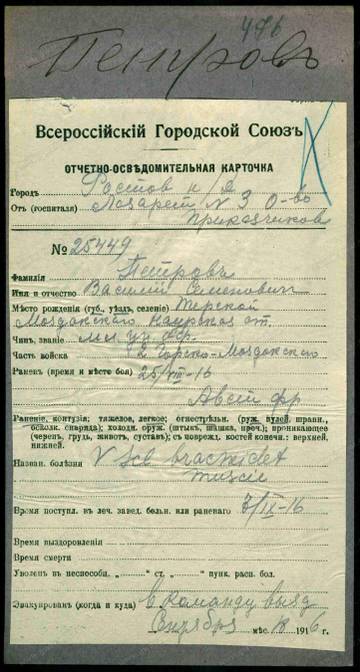 496
Петровъ
Всероссійскій Городской Союзъ
ОТЧЕТНО-ОСВѢДОМИТЕЛЬНАЯ КАРТОЧКА
Городъ Ростов н/Д
Отъ (госпиталя) Лазарет N 3 О-во
приказчиков
№ 25449
Фамилія Петровъ
Имя и отчество Василій Семенович
Мѣсто рожденія (губ., уѣздъ, селеніе) Терской
Моздокскаго ст.
Чинъ, званіе
Часть войска 2 Горско-Моздокскаго
Раненъ (время и мѣсто боя) 25/VIII-16
фр
Раненіе, контузія: тяжелое, легкое; огнестрѣльн. (руж. пулей, шрапн.,
осколк. снаряда); холодн. оруж. (штыкъ, шашка, проч.); проникающее
(черепъ, грудь, животъ, суставъ); съ поврежд. костей конечн.: верхней,
нижней.
Назван. болѣзни V Scl
Время поступл. въ леч. завед. больн. или раненаго 3/IX-16
Время выздоровленія
Время смерти
Уволенъ въ неспособн. „ “ ст. „ “ пунк. расп. бол.
Эвакуированъ (когда и куда) в команду вызд
мѣс. 1916 г.